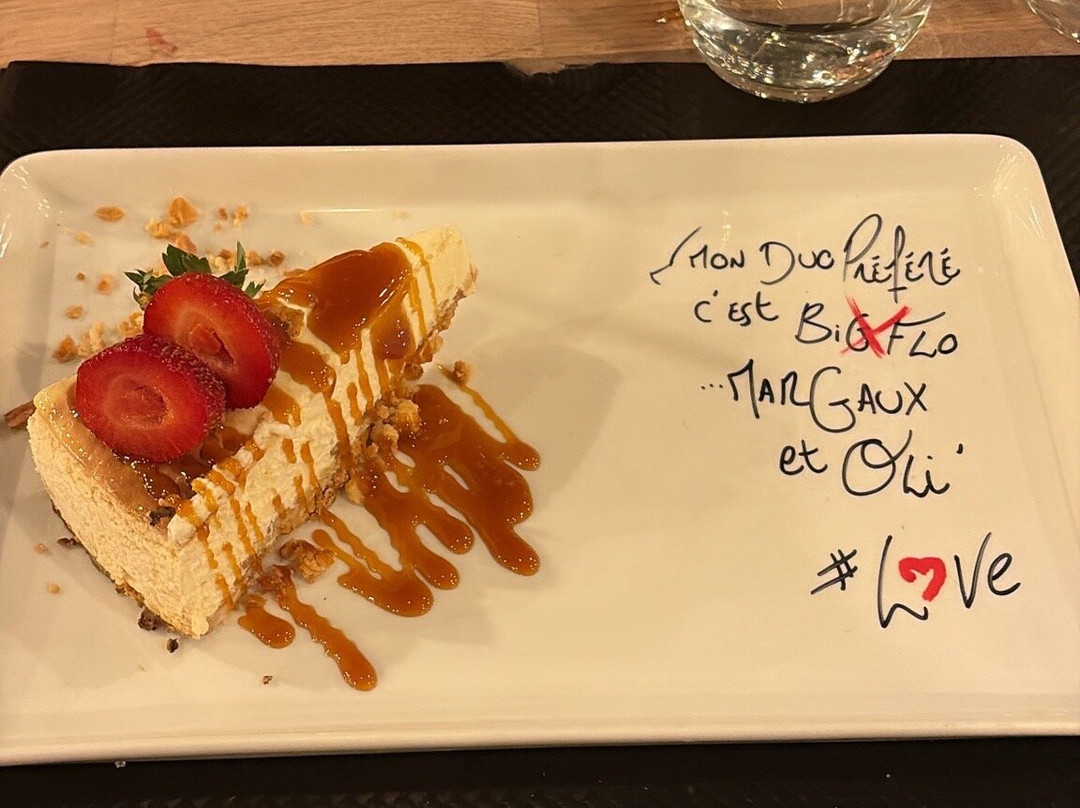 Mon Duo Préféré
c'est BiGFLO
...MARGAUX
et Oli'
#LOVe